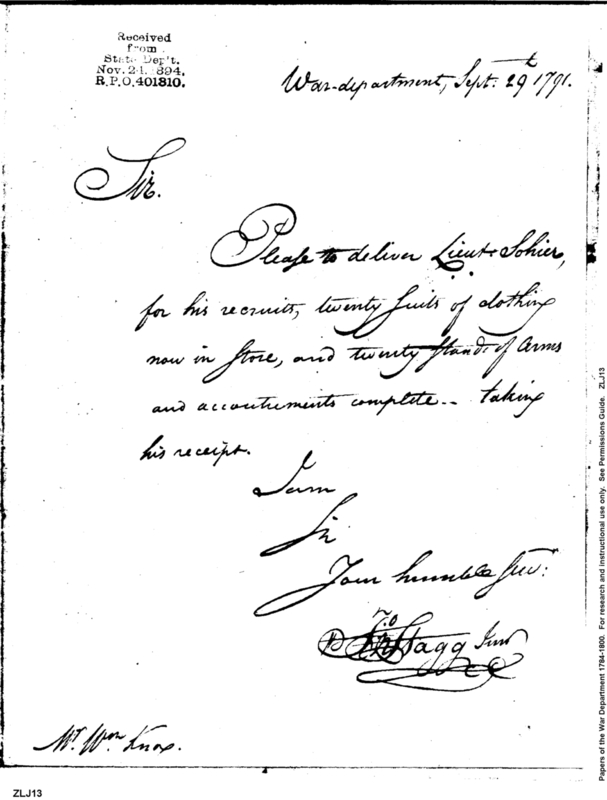 Received
from
State Dep't.
Nov. 24. 1894.
R.P.O. 401810.
War-department, Sept: 29th 1791.
Sir.
Please to deliver Lieut: Sohier,
for his recruits, twenty suits of clothing
now in store, and twenty stands of Arms
and accoutrements complete-- taking
his receipt.
I am
Sir
Your humble Serv:
Jno Stagg Junr
Mr. Wm Knox.
Papers of the War Department 1784-1800. For research and instructional use only. See Permissions Guide. ZLJ13
ZLJ13